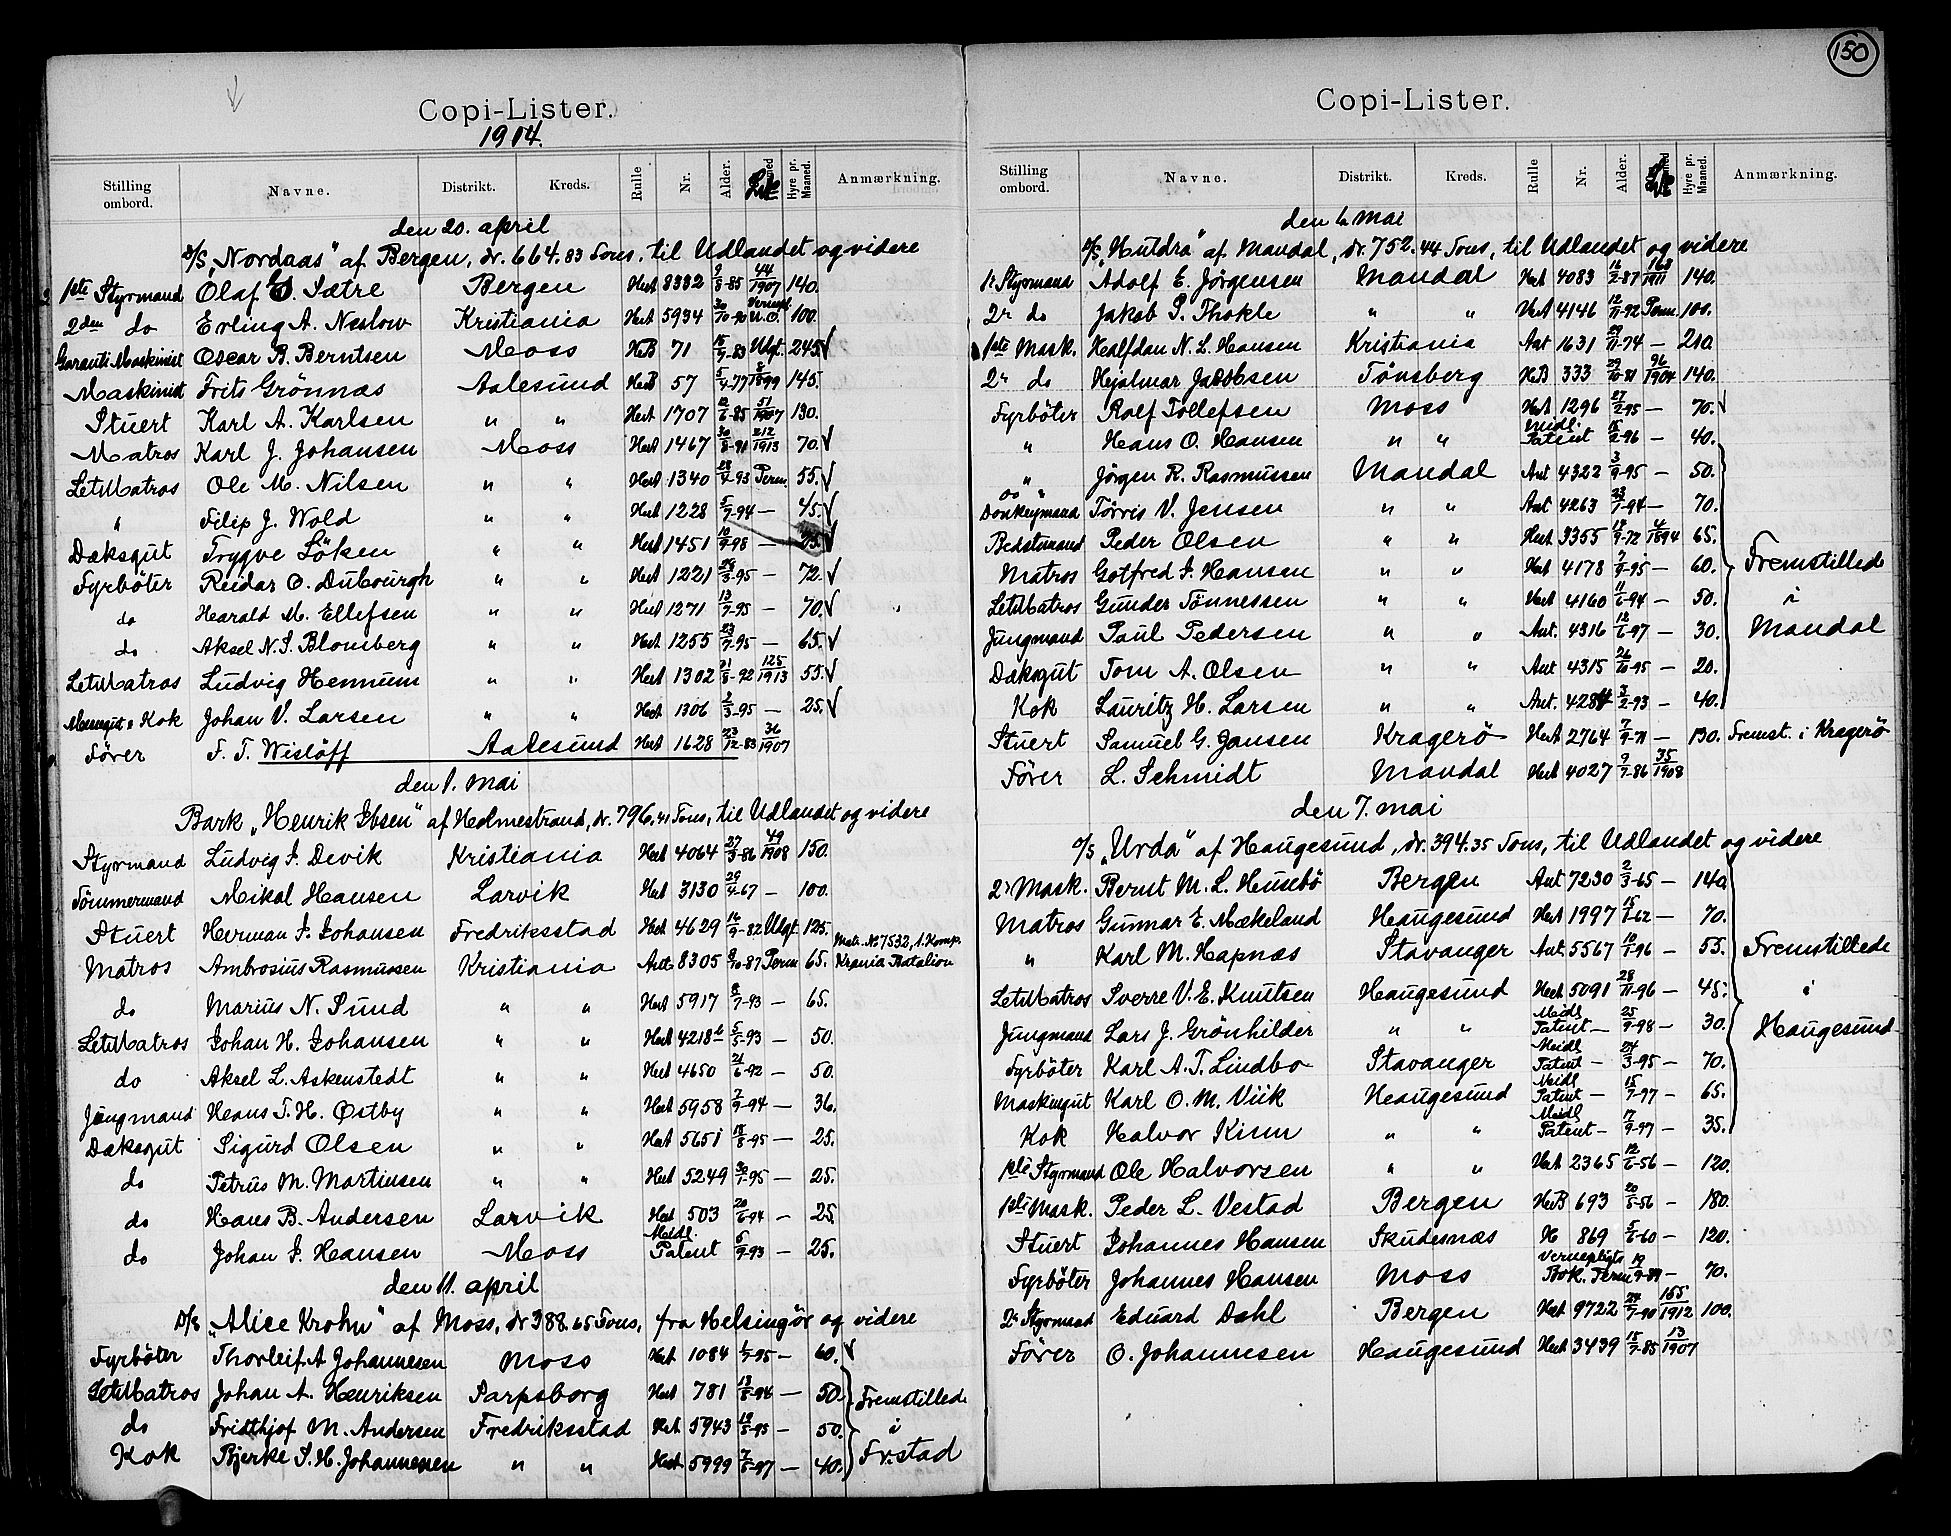 Copi-Lister.
1914.
Stilling ombord. Navne. Distrikt. Kreds. Rulle Nr. Alder. Hyre pr. Maaned. Anmærkning.
den 20. april
S/S „Nordaas" af Bergen, dr. 664.83 Tons, til Udlandet og videre
1ste Styrmand Olaf Sætre Bergen Hert 8332 9/8-85 44/1907 140.
2den do Erling A. Neslow Kristiania Hert 5934 30/10-90 100.
Garanti Maskinist Oscar B. Berntsen Moss HrB 71 15/9-83 Udgt. 245
Maskinist Frits Grönnas Aalesund HrB 57 5/4-77 8/1899 145.
Stuert Karl A. Karlsen " " Hert 1707 12/6-85 51/1907 130.
Matros Karl J. Johansen Moss Hert 1467 30/8-91 212/1913 70.
LetMatros Ole M. Nilsen " " Hert 1340 28/4-93 Perm. 55.
" Filip J. Wold " " Hert 1228 5/7-94 — 45.
Dæksgut Trygve Löken " " Hert 1451 10/9-98 —
Fyrböter Reidar O. Dubourgh " " Hert 1221 26/3-95 — 72.
do Harald M. Ellefsen " " Hert 1271 13/7-95 — 70.
do Aksel N. S. Blomberg " " Hert 1255 23/7-95 — 65.
LetMatros Ludvig Hennum " " Hert 1302 21/8-92 125/1913 55.
Messegut & Kok Johan V. Larsen " " Hert 1306 2/3-95 — 25.
Förer F. T. Wislöff Aalesund Hert 1628 23/12-83 36/1907
den 1. mai
Bark „Henrik Ibsen" af Holmestrand, dr. 796.41 Tons, til Udlandet og videre
Styrmand Ludvig J. Devik Kristiania Hert 4064 27/3-86 49/1908 150.
Tömmermand Mikal Hansen Larvik Hert 3130 29/4-67 — 100.
Stuert Herman J. Johansen Fredriksstad Hert 4629 16/9-82 Udgt 125.
Matros Ambrosius Rasmussen Kristiania Ant. 8305 9/10-87 Perm 65. Matr. No 7532, 1. Komp. Krania Batalion
do Marius N. Sund " " Hert 5917 8/7-93 — 65.
LetMatros Johan H. Johansen " " Hert 4218b 5/5-93 — 50.
do Aksel L. Askenstedt " " Hert 4650 21/6-92 — 50.
Jungmand Hans T. H. Østby " " Hert 5958 7/9-94 — 36.
Dæksgut Sigurd Olsen " " Hert 5651 18/8-95 — 25.
do Petrus M. Martinsen " " Hert 5249 30/7-95 — 25.
do Hans B. Andersen Larvik Hert 503 20/6-94 — 25.
do Johan J. Hansen Moss Meidl. Patent 6/9-93 — 25.
den 11. april
D/S „Alice Krohn" af Moss, dr 388.65 Tons, fra Helsingör og videre
Fyrböter Thorleif A Johannesen Moss Hert 1084 1/7-95 — 60.
LetMatros Johan A. Henriksen Sarpsborg Hert 781 13/8-94 — 50.
do Fridthjof M. Andersen Fredriksstad Hert 5943 19/5-95 — 50.
Kok Bjerke S. H. Johannesen " " Hert 5999 7/5-97 — 40.
Fremstillede
i
Fr.stad
150
Copi-Lister.
Stilling ombord. Navne. Distrikt. Kreds. Rulle Nr. Alder. Hyre pr. Maaned. Anmærkning.
den 6. Mai
D/S „Huldra" af Mandal, dr. 752.44 Tons, til Udlandet og videre
1r Styrmand Adolf E. Jørgensen Mandal Hert 4083 16/2-87 163/1911 140.
2r do Jakob P. Thokle " " Hert 4146 12/11-92 Perm 100.
1ste Mask. Halfdan N. L. Hansen Kristiania Ant 1631 29/11-74 — 210
2r do Hjalmar Jacobsen Tönsberg HrB 333 29/10-81 96/1904 140.
Fyrböter Rolf Tollefsen Moss Hert 1296 27/2-95 — 70.
" Hans O. Hansen " " Meidl. Patent 15/2-96 — 40.
" Jörgen R. Rasmussen Mandal Ant 4322 3/9-95 — 50.
Donkeymand Törris V. Jensen " " Ant 4263 23/7-94 — 70.
Bedstemand Peder Olsen " " Hert 3355 18/9-72 4/1894 65.
Matros Gotfred J. Hansen " " Hert 4178 7/9-95 — 60.
LetMatros Gunder Tönnessen " " Hert 4160 11/6-94 — 50.
Jungmand Paul Pedersen " " Ant. 4316 12/6-97 — 30.
Dæksgut Tom A. Olsen " " Ant 4315 26/10-95 — 20.
Kok Lauritz H. Larsen " " Ant. 4284 3/2-93 — 40.
Fremstillede
i
Mandal
Stuert Samuel G. Jansen Kragerö Hert 2764 7/9-71 — 130. Fremst. i Kragerö
Förer L. Schmidt Mandal Hert 4027 9/7-86 35/1908
den 7. mai
D/S „Urda" af Haugesund, dr. 394.35 Tons, til Udlandet og videre
2r Mask. Bernt M. L. Husebö Bergen Ant 7230 2/3-65 — 140
Matros Gunnar E. Mækeland Haugesund Hert 1997 15/1-62 — 70.
" Karl M. Hapnæs Stavanger Ant. 5567 10/1-96 — 55.
LetMatros Sverre V. E. Knutsen Haugesund Hert 5091 28/11-96 — 45.
Jungmand Lars J. Grönhilder " " Meidl Patent — 25/9-98 — 30.
Fyrböter Karl A. T. Lindbo Stavanger Meidl Patent — 24/3-95 — 70.
Maskingut Karl O. M. Viik Haugesund Meidl Patent — 15/7-97 — 65.
Kok Halvor Kinn " " Meidl Patent — 17/9-97 — 35.
Fremstillede
i
Haugesund
1ste Styrmand Ole Halvorsen " " Hert 2365 12/6-56 — 120.
1ste Mask. Peder L. Vestad Bergen HrB 693 20/5-56 — 180.
Stuert Johannes Hansen Skudesnæs H 869 5/6-60 — 120.
Fyrböter Johannes Hansen Moss Vernepligts Bok. Perm 19/9-89 — 70.
2r Styrmand Eduard Dahl Bergen Hert 9722 29/7-90 155/1912 100.
Förer O. Johannesen Haugesund Hert 3439 15/7-85 13/1907